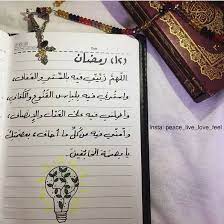 (١٢) رمضان
اللهم زيني فيه بالستر والعفاف،
واسترني فيه بلباس القنوع والكفاف،
واحملني فيه على العدل والإنصاف،
وآمني فيه من كل ما أخاف، بعصمتك
يا عصمة الخائفين
Insta|peace_live_love_feel